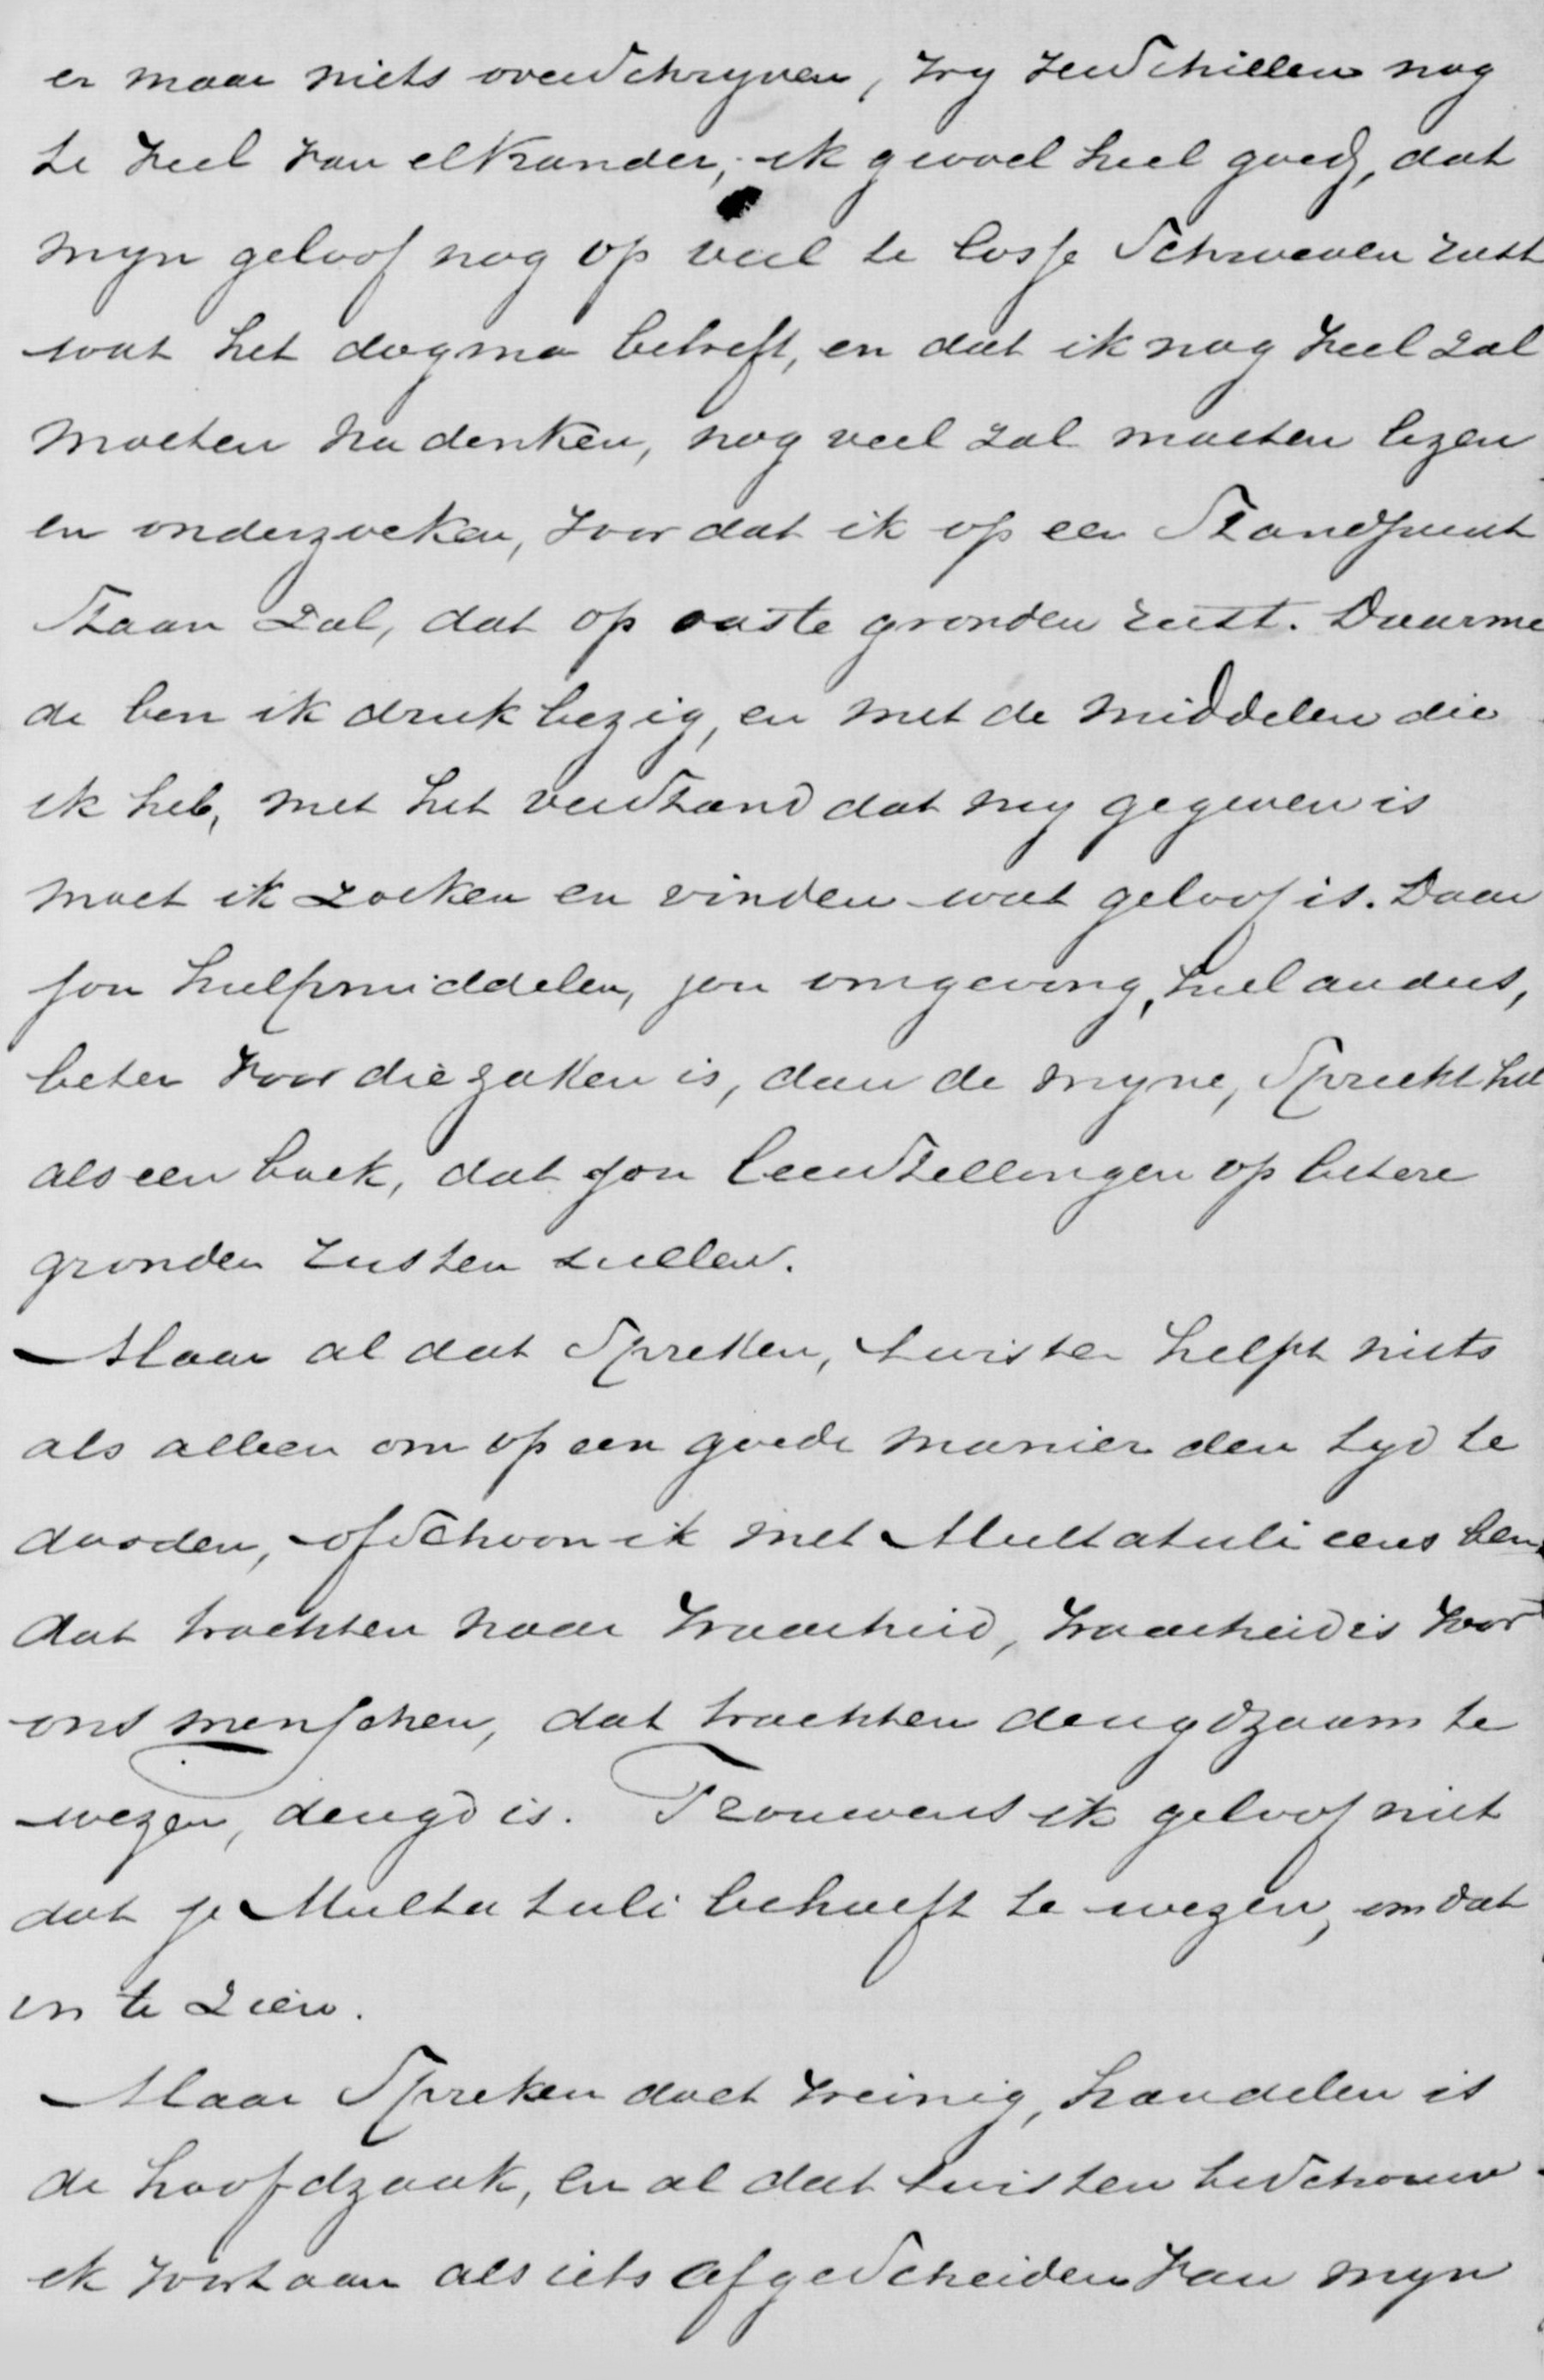 er maar niets overschryven, wy verschillen nog
te veel van elkander, ik gevoel heel goed, dat
myn geloof nog op veel te losse schroeven rust
wat het dogma betreft, en dat ik nog veel zal
moeten nadenken, nog veel zal moeten lezen
en onderzoeken, voor dat ik op een standpunt
staan zal, dat op vaste gronden rust. Daarme
de ben ik druk bezig, en met de middelen die
ik heb, met het verstand dat my gegeven is
moet ik zoeken en vinden wat geloof is. Daar
jou hulpmiddelen, jou omgeving, heel anders,
beter voor die zaken is, dan de myne, spreekt het
als een boek, dat jou leerstellingen op betere
gronden rusten zullen.
Maar al dat spreken, twisten helpt niets
als alleen om op een goede manier den tyd te
dooden, ofschoon ik met Multatuli eens ben,
dat trachten naar waarheid, waarheid is voor
ons menschen, dat trachten deugdzaam te
wezen, deugd is. Trouwens ik geloof niet
dat je Multatuli behoeft te wezen, om dat
in te zien.
Maar spreken doet weinig, handelen is
de hoofdzaak, en al dat twisten beschouw
ik voortaan als iets afgescheiden van myn